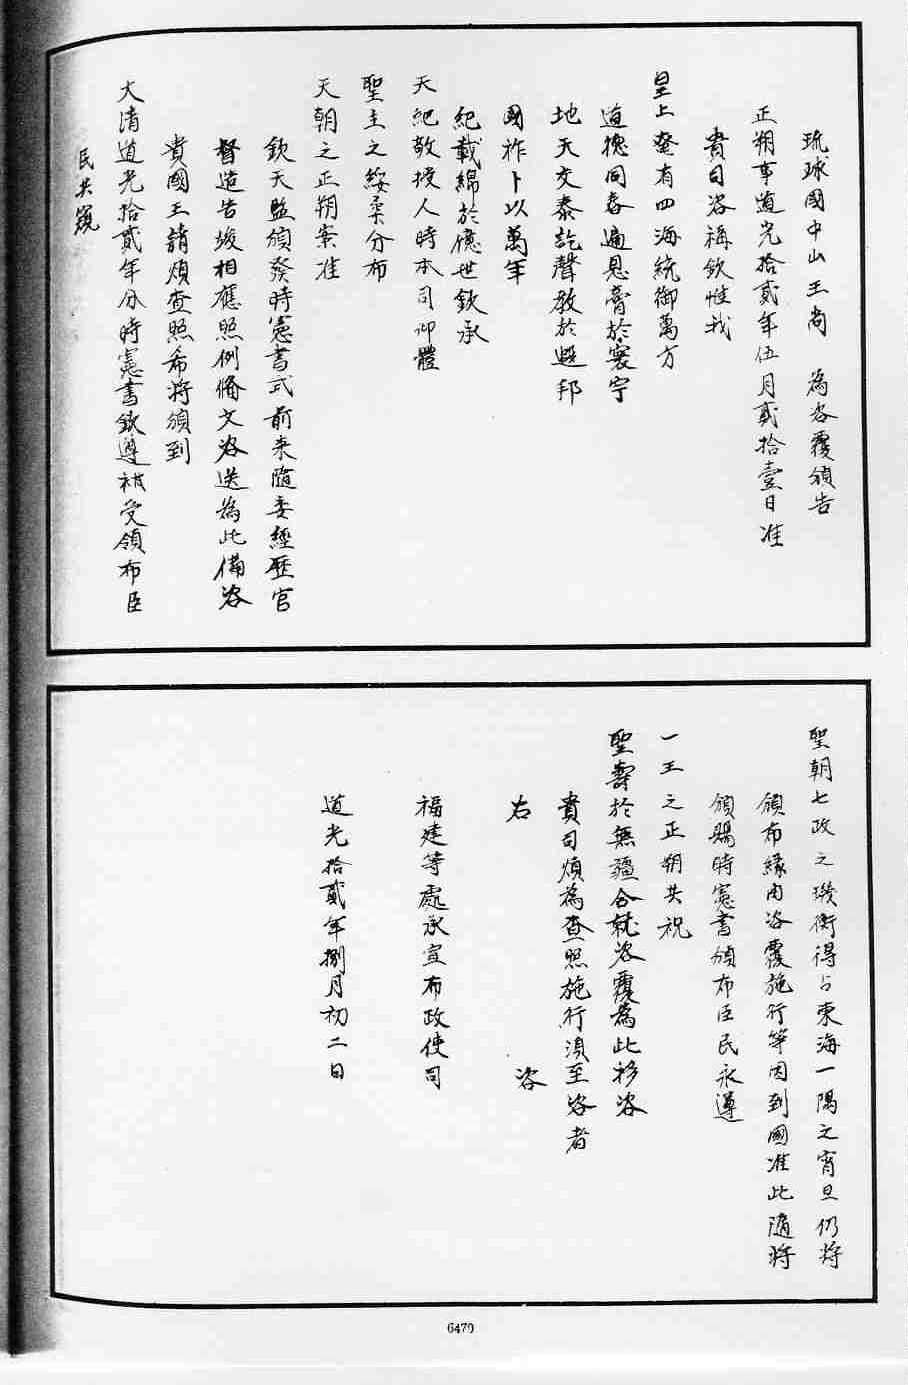 琉球國中山王尚　為咨覆頒告
正朔事道光拾貳年伍月貳拾壹日准
貴司咨稱欽惟我
皇上奄有四海統御萬方
道德同春遍恩膏於寰宇
地天交泰訖聲教於遐邦
國祚卜以萬年
紀載綿於億世欽承
天紀敬授人時本司仰體
聖主之綏柔分布
天朝之正朔案准
欽天監頒發時憲書式前來隨委經歷官
督造告竣相應照例俻文咨送為此備咨
貴國王請煩查照希將頒到
大清道光拾貳年分時憲書欽遵祗受領布臣
民共窺
聖朝七政之璣衡得占東海一隅之宵旦仍將
頒布緣由咨覆施行等因到國准此隨將
頒賜時憲書頒布臣民永遵
一王之正朔共祝
聖壽於無疆合就咨覆為此移咨
貴司煩為查照施行須至咨者
右　咨
福建等處承宣布政使司
道光拾貳年捌月初二日
6479